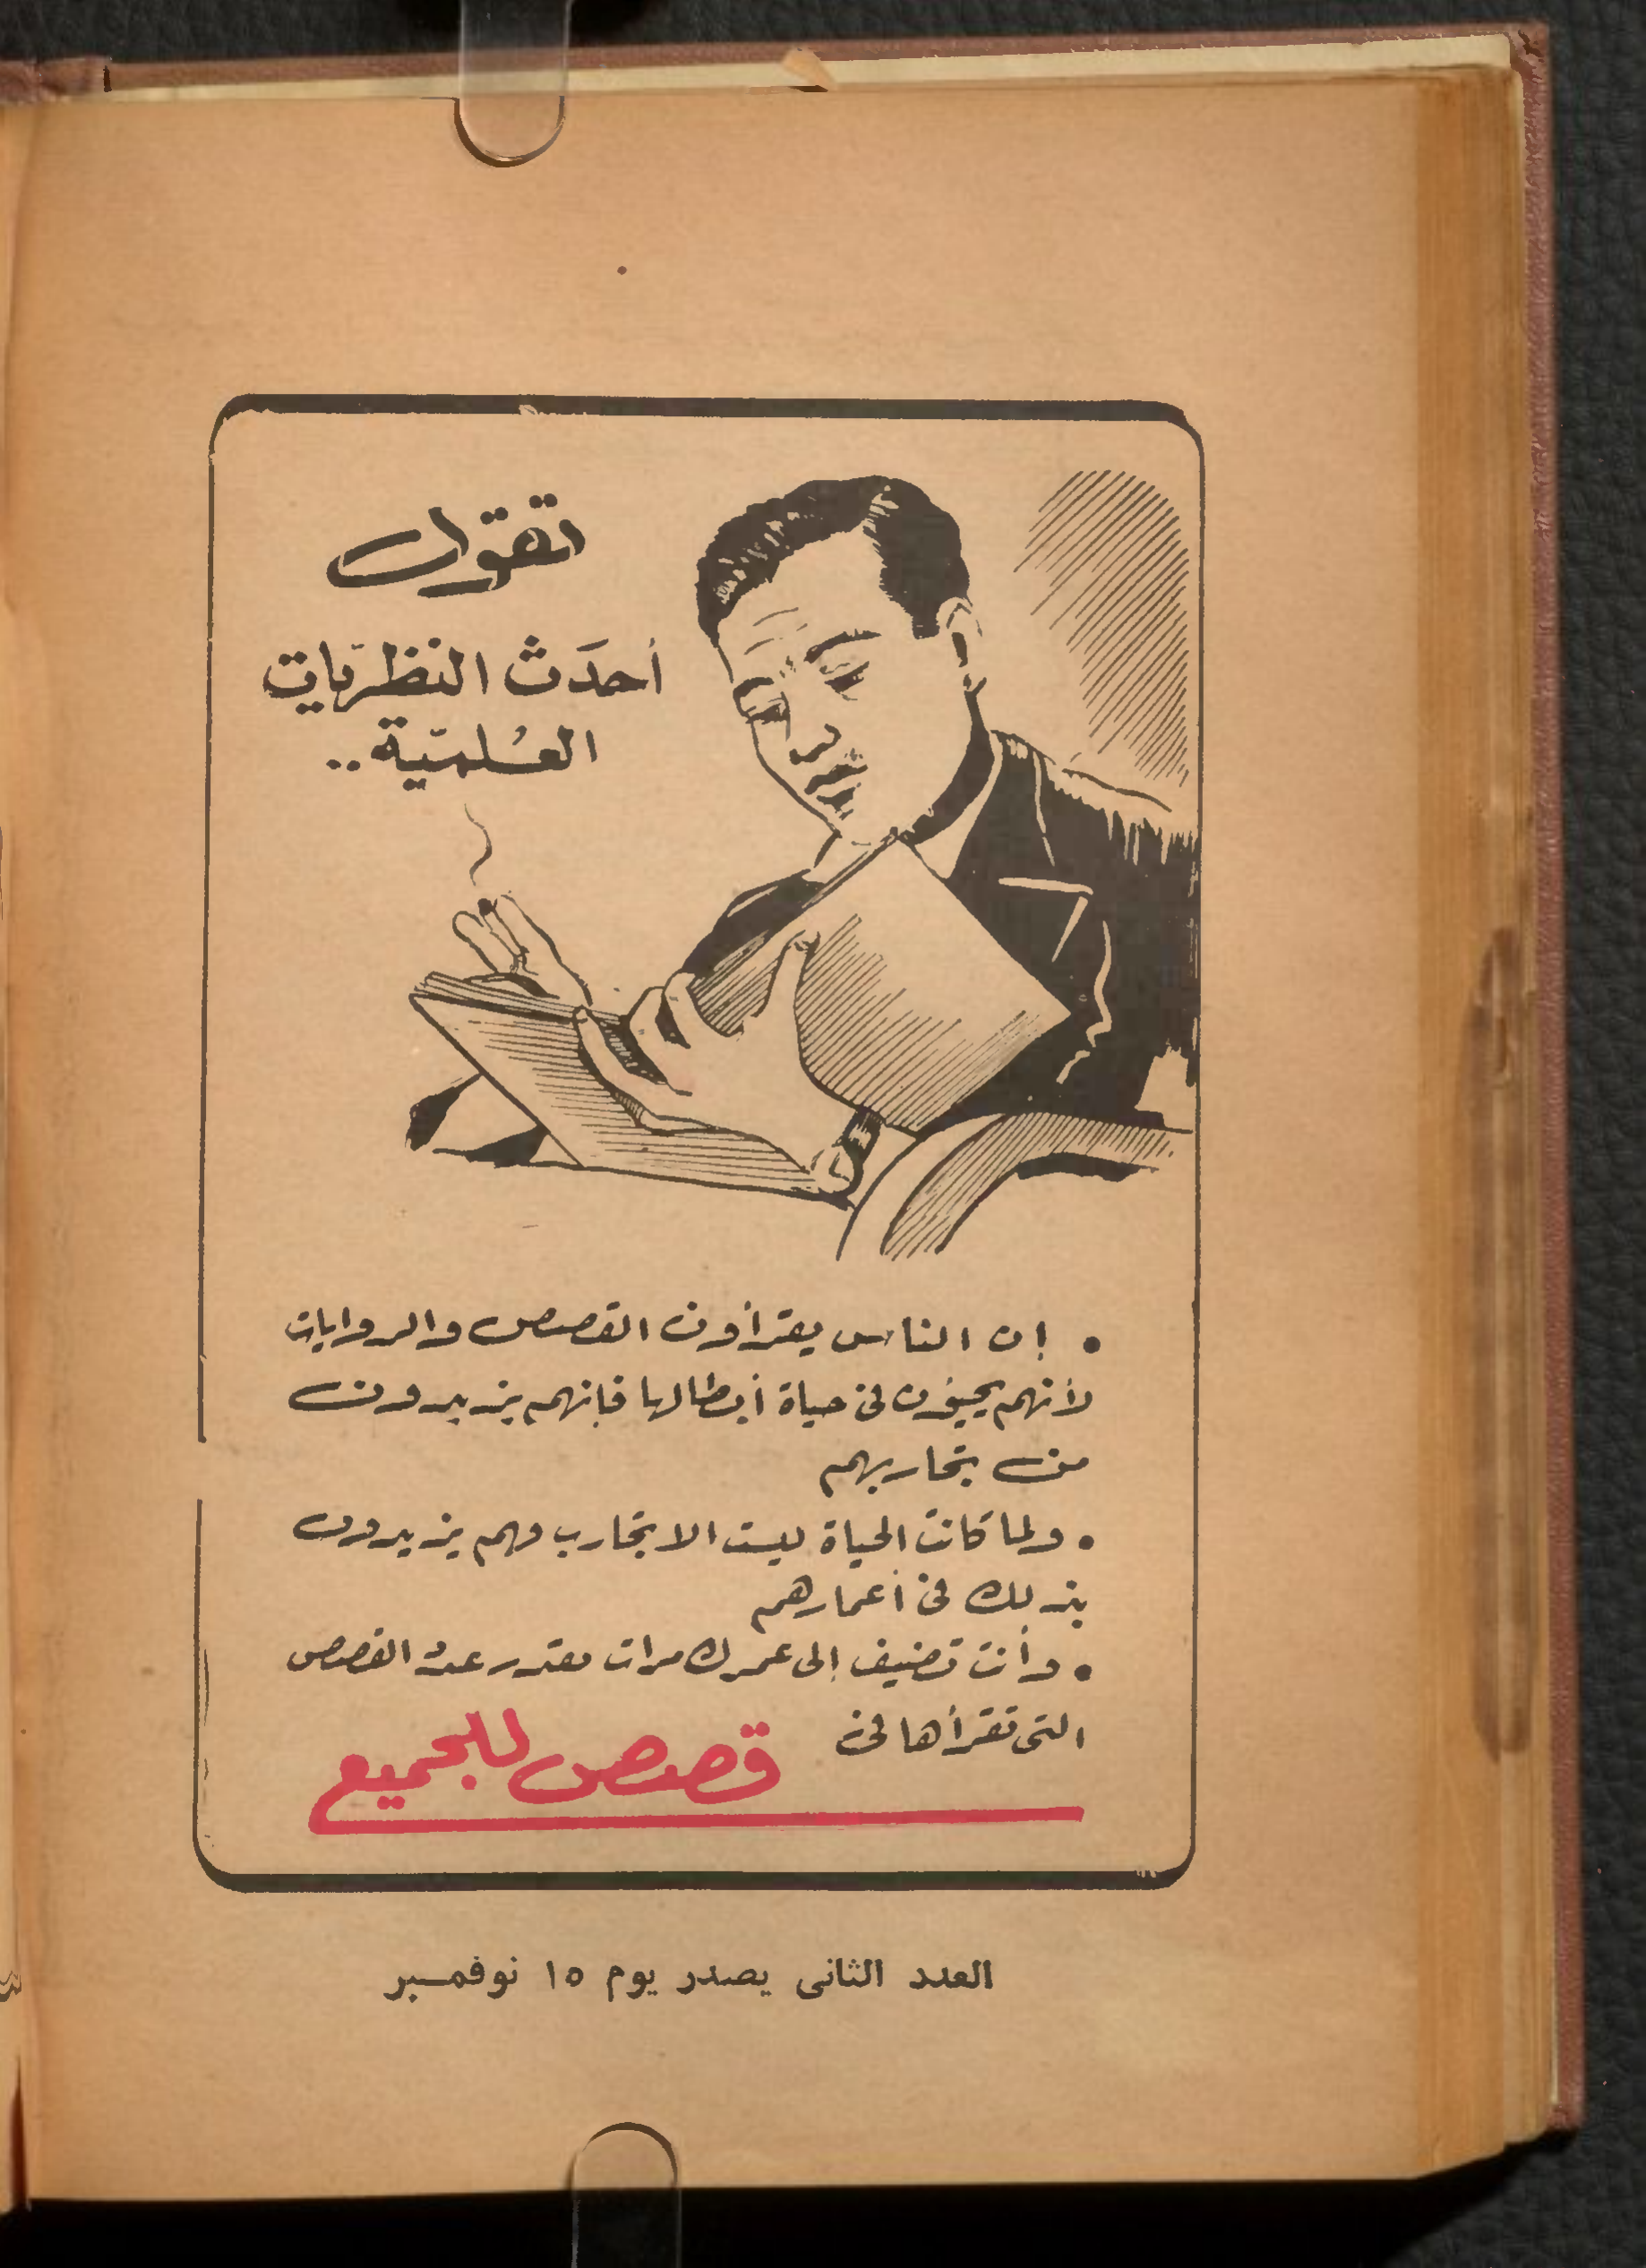 تقول
أحدَث النظرّيات
العلميّة ..
• إن الناس يقرأون القصص والروايات
لأنهم يحيون فى حياة أبطالها فإنهم يزيدون
من تجاربهم
• ولما كانت الحياة ليست الا تجارب فهم يزيدون
بذلك فى أعمارهم
• وأنت تضيف إلى عمرك مرات بقدر عدد القصص
التى تقرأها فى قصص للجميع
العدد الثانى يصدر يوم ١٥ نوفمبر